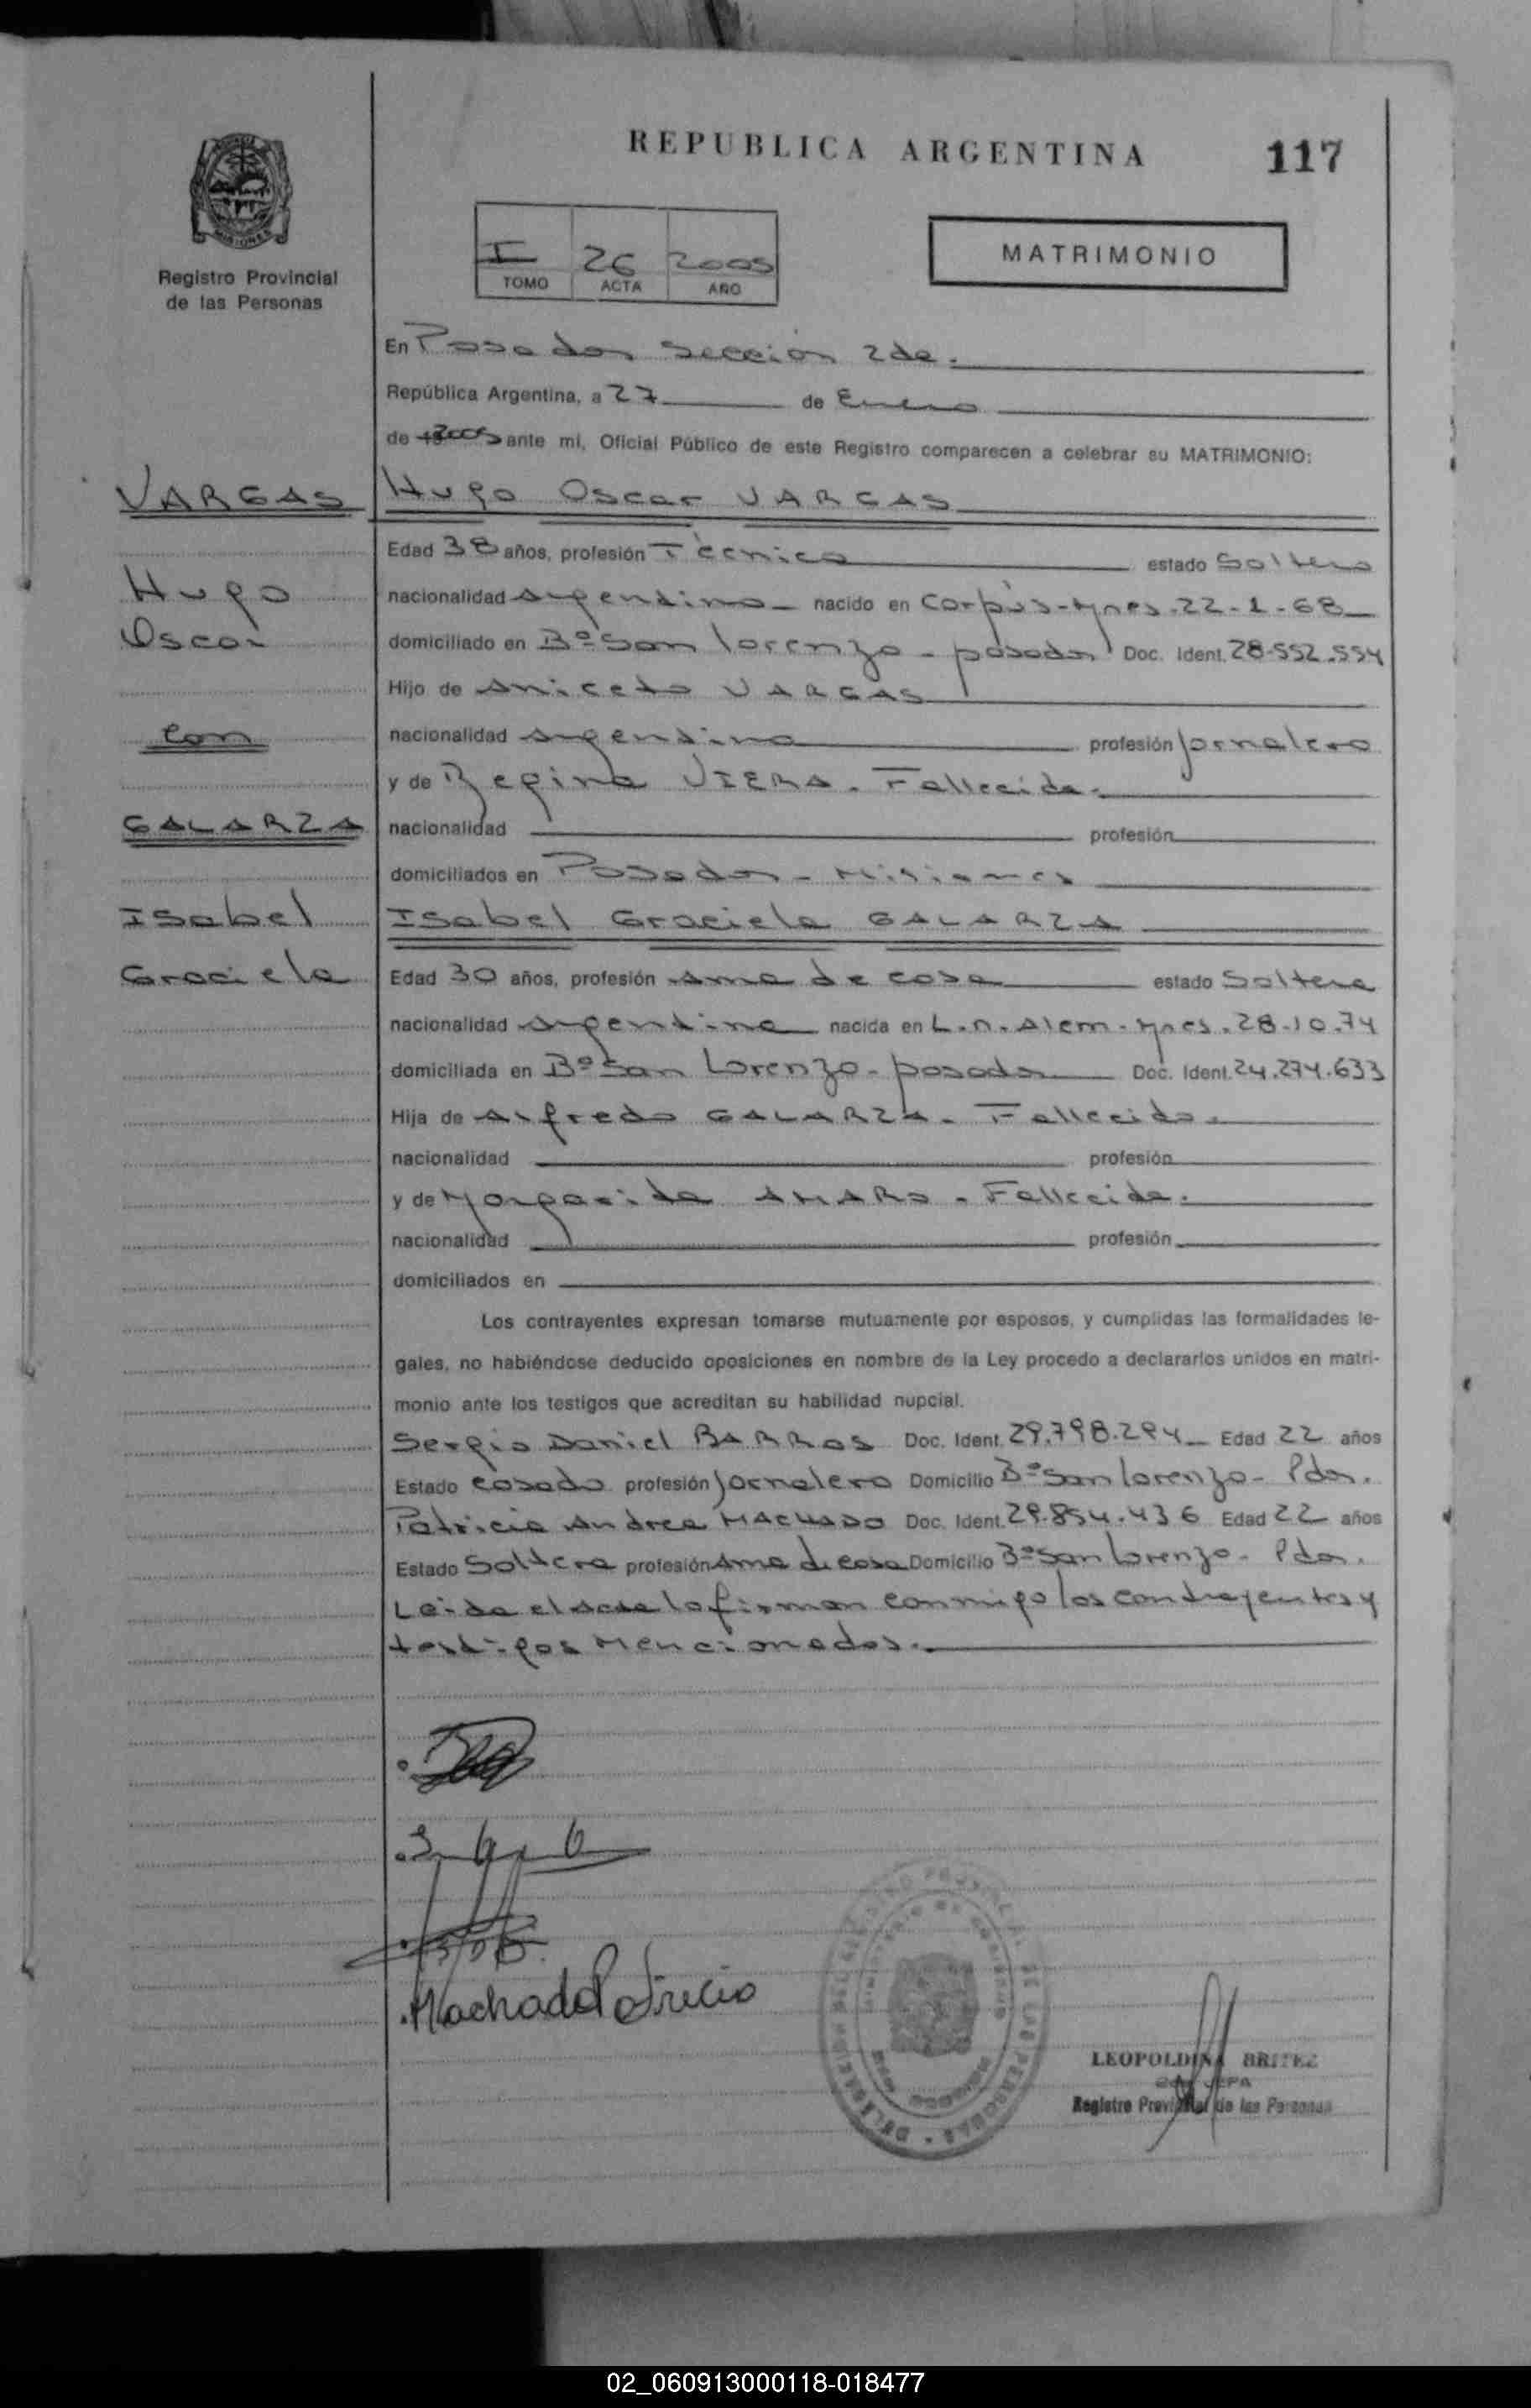 REPUBLICA ARGENTINA 117
MISIONES
Registro Provincial
de las Personas
I 26 2005
TOMO ACTA AÑO
MATRIMONIO
En Posadas Sección 2da.
República Argentina, a 27 de Enero
de 2005 ante mi, Oficial Público de este Registro comparecen a celebrar su MATRIMONIO:
VARGAS
Hugo Oscar VARGAS
Edad 38 años, profesión Técnico estado Soltero
Hugo
nacionalidad Argentino nacido en Corpus-Mnes. 22-1-68
Oscar
domiciliado en Bº San Lorenzo - posadas Doc. Ident. 28.552.554
Hijo de Aniceto VARGAS
Con
nacionalidad Argentina profesión Jornalero
y de Regina VIERA. Fallecida.
GALARZA
nacionalidad profesión
domiciliados en Posadas - Misiones
Isabel
Isabel Graciela GALARZA
Graciela
Edad 30 años, profesión Ama de casa estado Soltera
nacionalidad Argentina nacida en L.N. Alem - Mnes. 28-10-74
domiciliada en Bº San Lorenzo - posadas Doc. Ident. 24.274.633
Hija de Alfredo GALARZA. Fallecido.
nacionalidad profesión
y de Margarida AMARO - Fallecida.
nacionalidad profesión
domiciliados en
Los contrayentes expresan tomarse mutuamente por esposos, y cumplidas las formalidades le-
gales, no habiéndose deducido oposiciones en nombre de la Ley procedo a declararlos unidos en matri-
monio ante los testigos que acreditan su habilidad nupcial.
Sergio Daniel BARROS Doc. Ident. 29.798.294 Edad 22 años
Estado Casado profesión Jornalero Domicilio Bº San Lorenzo - Pdas.
Patricia Andrea MACHADO Doc. Ident. 29.854.436 Edad 22 años
Estado Soltera profesión Ama de casa Domicilio Bº San Lorenzo - Pdas.
Leida el acta la firman conmigo los contrayentes y
testigos mencionados.
Machado Patricia
LEOPOLDINA BRITEZ
Registro Provincial de las Personas
02_060913000118-018477